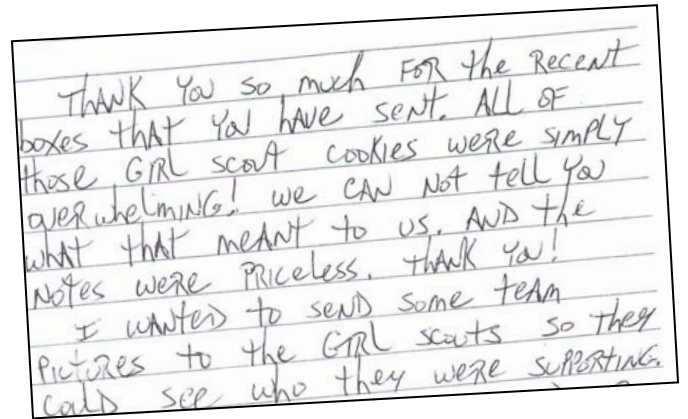 THANK YOU SO much FOR the RECENT
boxes thAT YOU hAVE SENT. ALL OF
those GIRL scout COOKIES WERE SIMPLY
overwhelmING! WE CAN NOT tell YOU
whAT thAT MEANT to US. AND the
NOTES WERE PRICELESS. thANK YOU!
I WANTED to SEND SOME tEAM
PICTURES to the GIRL SCOUTS SO they
COULD SEE who they WERE SUPPORTING.